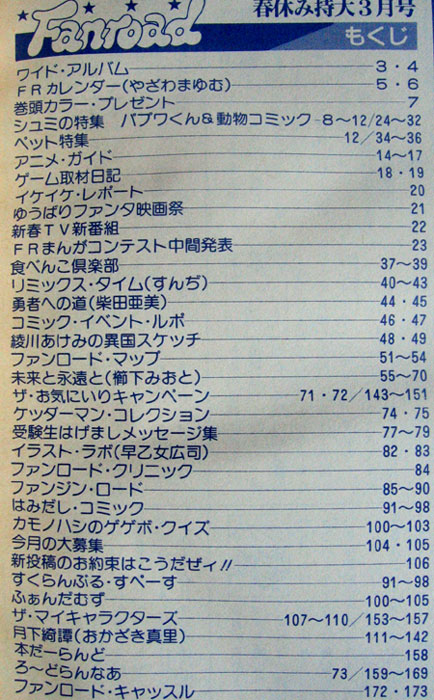 春休み特大3月号
Fanroad
もくじ
ワイド・アルバム 3・4
FRカレンダー(やざわまゆむ) 5・6
巻頭カラー・プレゼント 7
シュミの特集 パプワくん&動物コミック 8〜12/24〜32
ペット特集 12/34〜36
アニメ・ガイド 14〜17
ゲーム取材日記 18・19
イケイケ・レポート 20
ゆうばりファンタ映画祭 21
新春TV新番組 22
FRまんがコンテスト中間発表 23
食べんこ倶楽部 37〜39
リミックス・タイム(すんぢ) 40〜43
勇者への道(柴田亜美) 44・45
コミック・イベント・ルポ 46・47
綾川あけみの異国スケッチ 48・49
ファンロード・マップ 51〜54
未来と永遠と(櫛下みおと) 55〜70
ザ・お気にいりキャンペーン 71・72/143〜151
ケッダーマン・コレクション 74・75
受験生はげましメッセージ集 77〜79
イラスト・ラボ(早乙女広司) 82・83
ファンロード・クリニック 84
ファンジン・ロード 85〜90
はみだし・コミック 91〜98
カモノハシのゲゲボ・クイズ 100〜103
今月の大募集 104・105
新投稿のお約束はこうだぜィ!! 106
すくらんぶる・すぺーす 91〜98
ふぁんだむず 100〜105
ザ・マイキャラクターズ 107〜110/153〜157
月下綺譚(おかざき真里) 111〜142
本だーらんど 158
ろ〜どらんなあ 73/159〜169
ファンロード・キャッスル 172・173